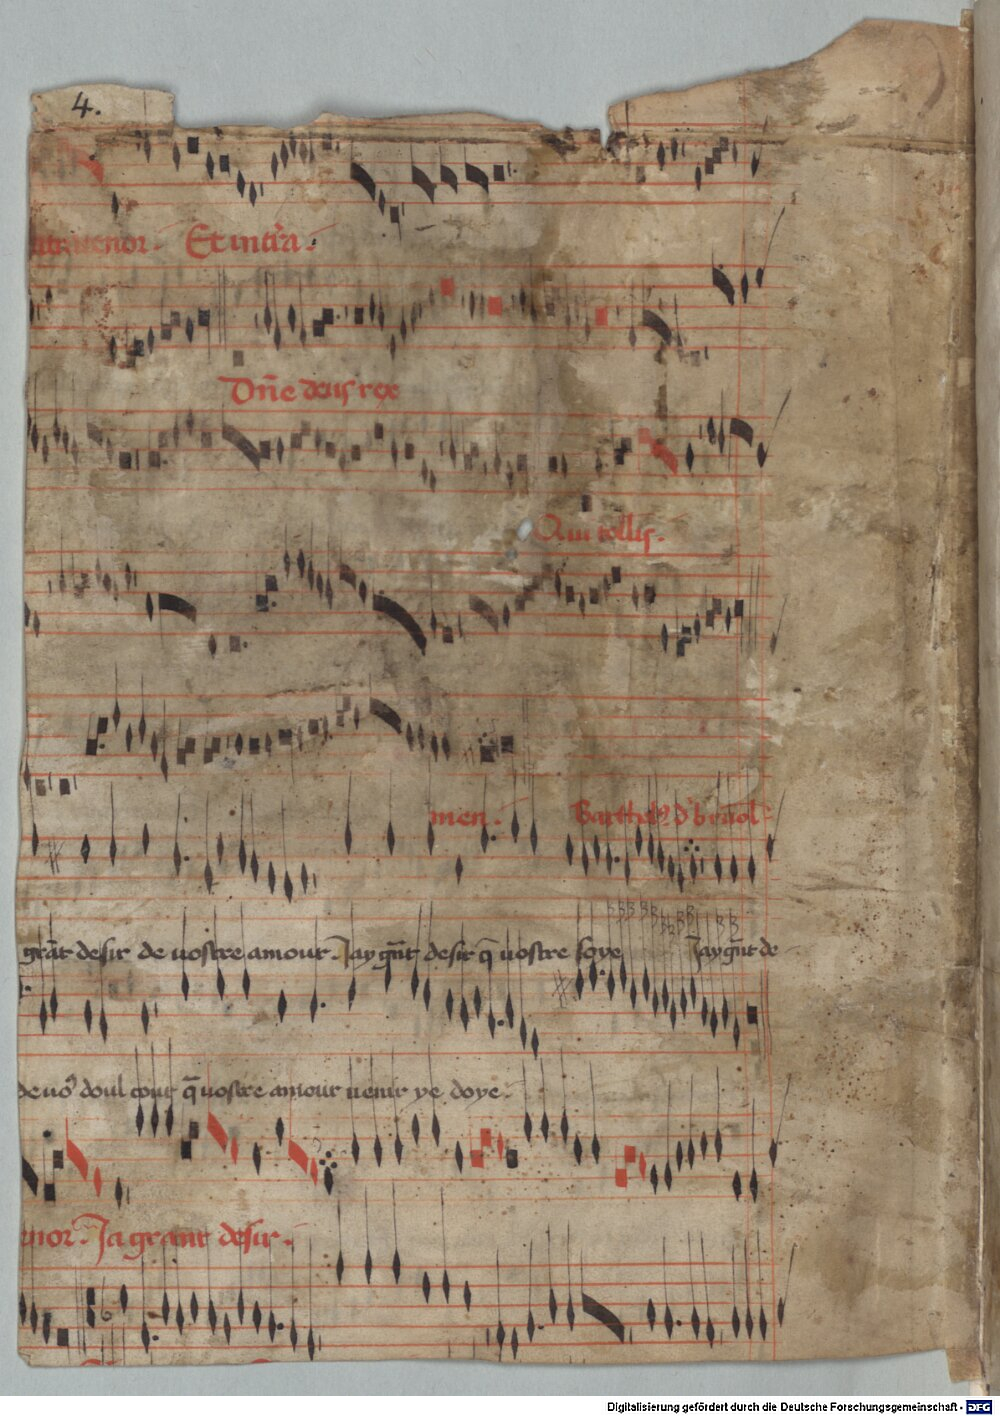 4.
tratenor. Et in t'ra.
Dn̄e deus rex
Qui tollis.
men.
grāt desir de vostre amour. Jay gn̄t desir q̄ vostre soye Jay gn̄t de
de vo' doul cour q̄ vostre amour venir ye doye.
enor. Ja grant desir.
Digitalisierung gefördert durch die Deutsche Forschungsgemeinschaft - DFG